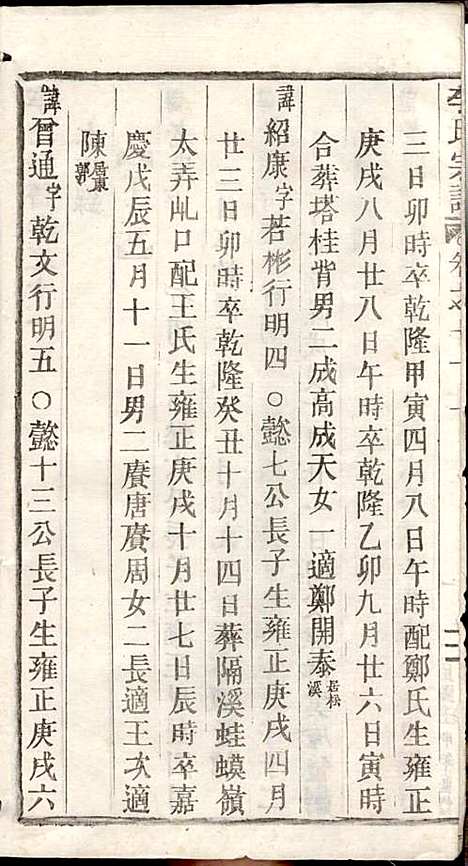 李氏宗譜
三日卯時卒乾隆甲寅四月八日午時配鄭氏生雍正
庚戌八月廿八日午時卒乾隆乙卯九月廿六日寅時
合葬塔桂背男二成高成天女一適鄭開泰居松溪
諱紹康字若彬行明四○懿七公長子生雍正庚戌四月
廿三日卯時卒乾隆癸丑十月十四日葬隔溪蛙蟆嶺
太弄乢口配王氏生雍正庚戌十月廿七日辰時卒嘉
慶戊辰五月十一日男二賡唐賡周女二長適王次適
陳居東郭
諱曾通字乾文行明五○懿十三公長子生雍正庚戌六